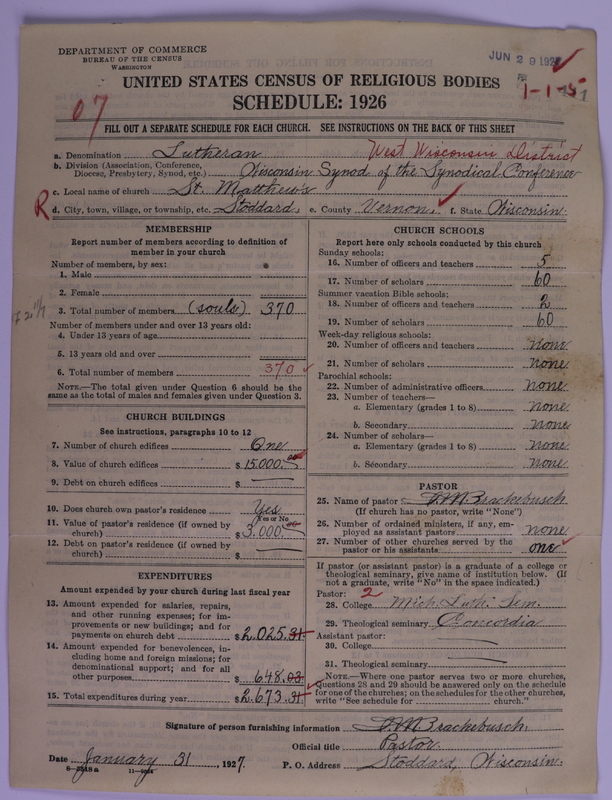 DEPARTMENT OF COMMERCE
BUREAU OF THE CENSUS
WASHINGTON
JUN 29 192
1-1-
07
UNITED STATES CENSUS OF RELIGIOUS BODIES
SCHEDULE: 1926
FILL OUT A SEPARATE SCHEDULE FOR EACH CHURCH. SEE INSTRUCTIONS ON THE BACK OF THIS SHEET
a. Denomination Lutheran West Wisconsin District
b. Division (Association, Conference, Diocese, Presbytery, Synod, etc.) Wisconsin Synod of the Synodical Conference
c. Local name of church St. Matthew's
R d. City, town, village, or township, etc. Stoddard, e. County Vernon, f. State Wisconsin.
MEMBERSHIP
Report number of members according to definition of
member in your church
Number of members, by sex:
1. Male
2. Female
3. Total number of members (souls) 370
Number of members under and over 13 years old:
4. Under 13 years of age
5. 13 years old and over
6. Total number of members 370
NOTE.—The total given under Question 6 should be
same as the total of males and females given under Question 3.
CHURCH BUILDINGS
See instructions, paragraphs 10 to 12
7. Number of church edifices One
8. Value of church edifices $ 15,000.00
9. Debt on church edifices $ —
10. Does church own pastor's residence Yes
(Yes or No)
11. Value of pastor's residence (if owned by
church) $ 3,000.00
12. Debt on pastor's residence (if owned by
church) $ —
EXPENDITURES
Amount expended by your church during last fiscal year
13. Amount expended for salaries, repairs,
and other running expenses; for im-
provements or new buildings; and for
payments on church debt $ 2,025.31
14. Amount expended for benevolences, in-
cluding home and foreign missions; for
denominational support; and for all
other purposes $ 648.03
15. Total expenditures during year $ 2,673.31
CHURCH SCHOOLS
Report here only schools conducted by this church
Sunday schools:
16. Number of officers and teachers 5
17. Number of scholars 60
Summer vacation Bible schools:
18. Number of officers and teachers 2
19. Number of scholars 60
Week-day religious schools:
20. Number of officers and teachers none
21. Number of scholars none
Parochial schools:
22. Number of administrative officers none
23. Number of teachers—
a. Elementary (grades 1 to 8) none
b. Secondary none
24. Number of scholars—
a. Elementary (grades 1 to 8) none
b. Secondary none
PASTOR
25. Name of pastor Brackebusch
(If church has no pastor, write "None")
26. Number of ordained ministers, if any, em-
ployed as assistant pastors none
27. Number of other churches served by the
pastor or his assistants one
If pastor (or assistant pastor) is a graduate of a college or
theological seminary, give name of institution below. (If
not a graduate, write "No" in the space indicated.)
Pastor: 2
28. College Mich. Luth. Sem.
29. Theological seminary Concordia
Assistant pastor:
30. College —
31. Theological seminary —
NOTE.—Where one pastor serves two or more churches,
Questions 28 and 29 should be answered only on the schedule
for one of the churches; on the schedules for the other churches,
write "See schedule for church."
Signature of person furnishing information Brackebusch
Official title Pastor
Date January 31, 1927. P. O. Address Stoddard, Wisconsin.